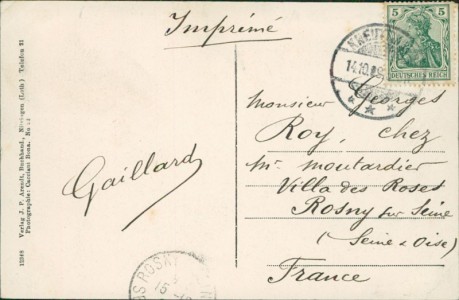 Imprimé
5 5
DEUTSCHES REICH
14.10.09
Monsieur Georges
Roy, chez
Mr. Moutardier
Villa des Roses
Rosny sur Seine
(Seine & Oise)
France
Gaillard
Verlag J. P. Arendt, Buchhand., (Loth.) Telefon 21
Photographie: